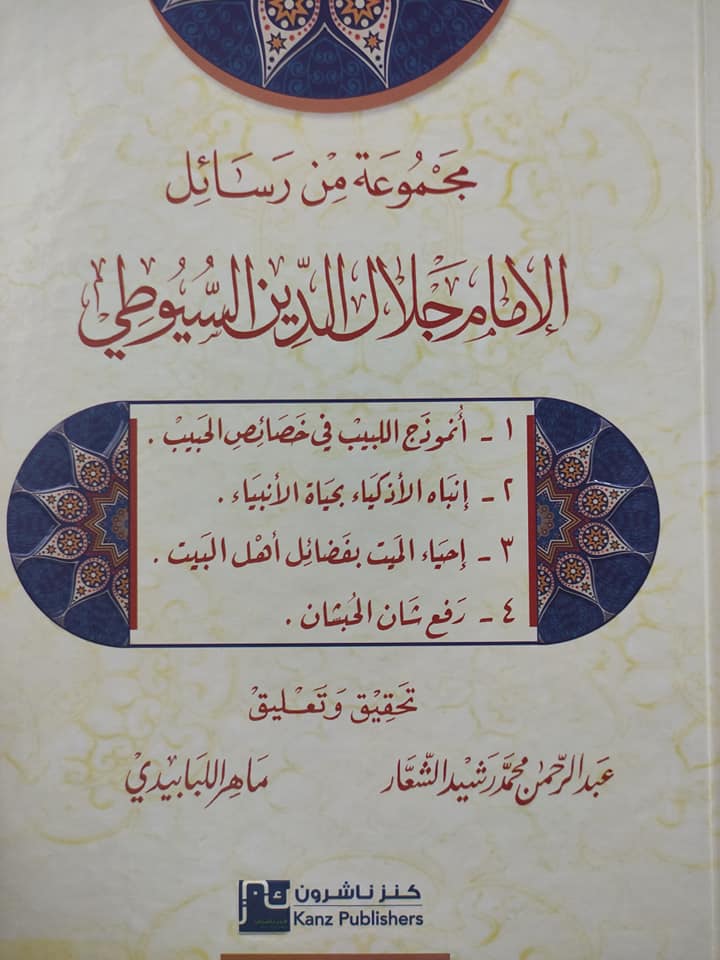 مَجْمُوعَة مِنْ رَسَائِل
الإمام جَلال الدِّين السُّيُوطِي
١ - أُنموذَج اللبيب في خَصَائِصِ الحَبيبْ .
٢ - إنبَاه الأذكيَاء بحيَاة الأنبيَاء .
٣ - إحيَاء الميت بفَضائِل أهْل البَيت .
٤ - رَفع شَان الحُبشان .
تَحقِيْق وَتَعْليقْ
عَبد الرَّحمٰن محمَّد رَشيد الشَّعَّار
مَاهِر اللبَابيدي
كنز ناشرون
Kanz Publishers